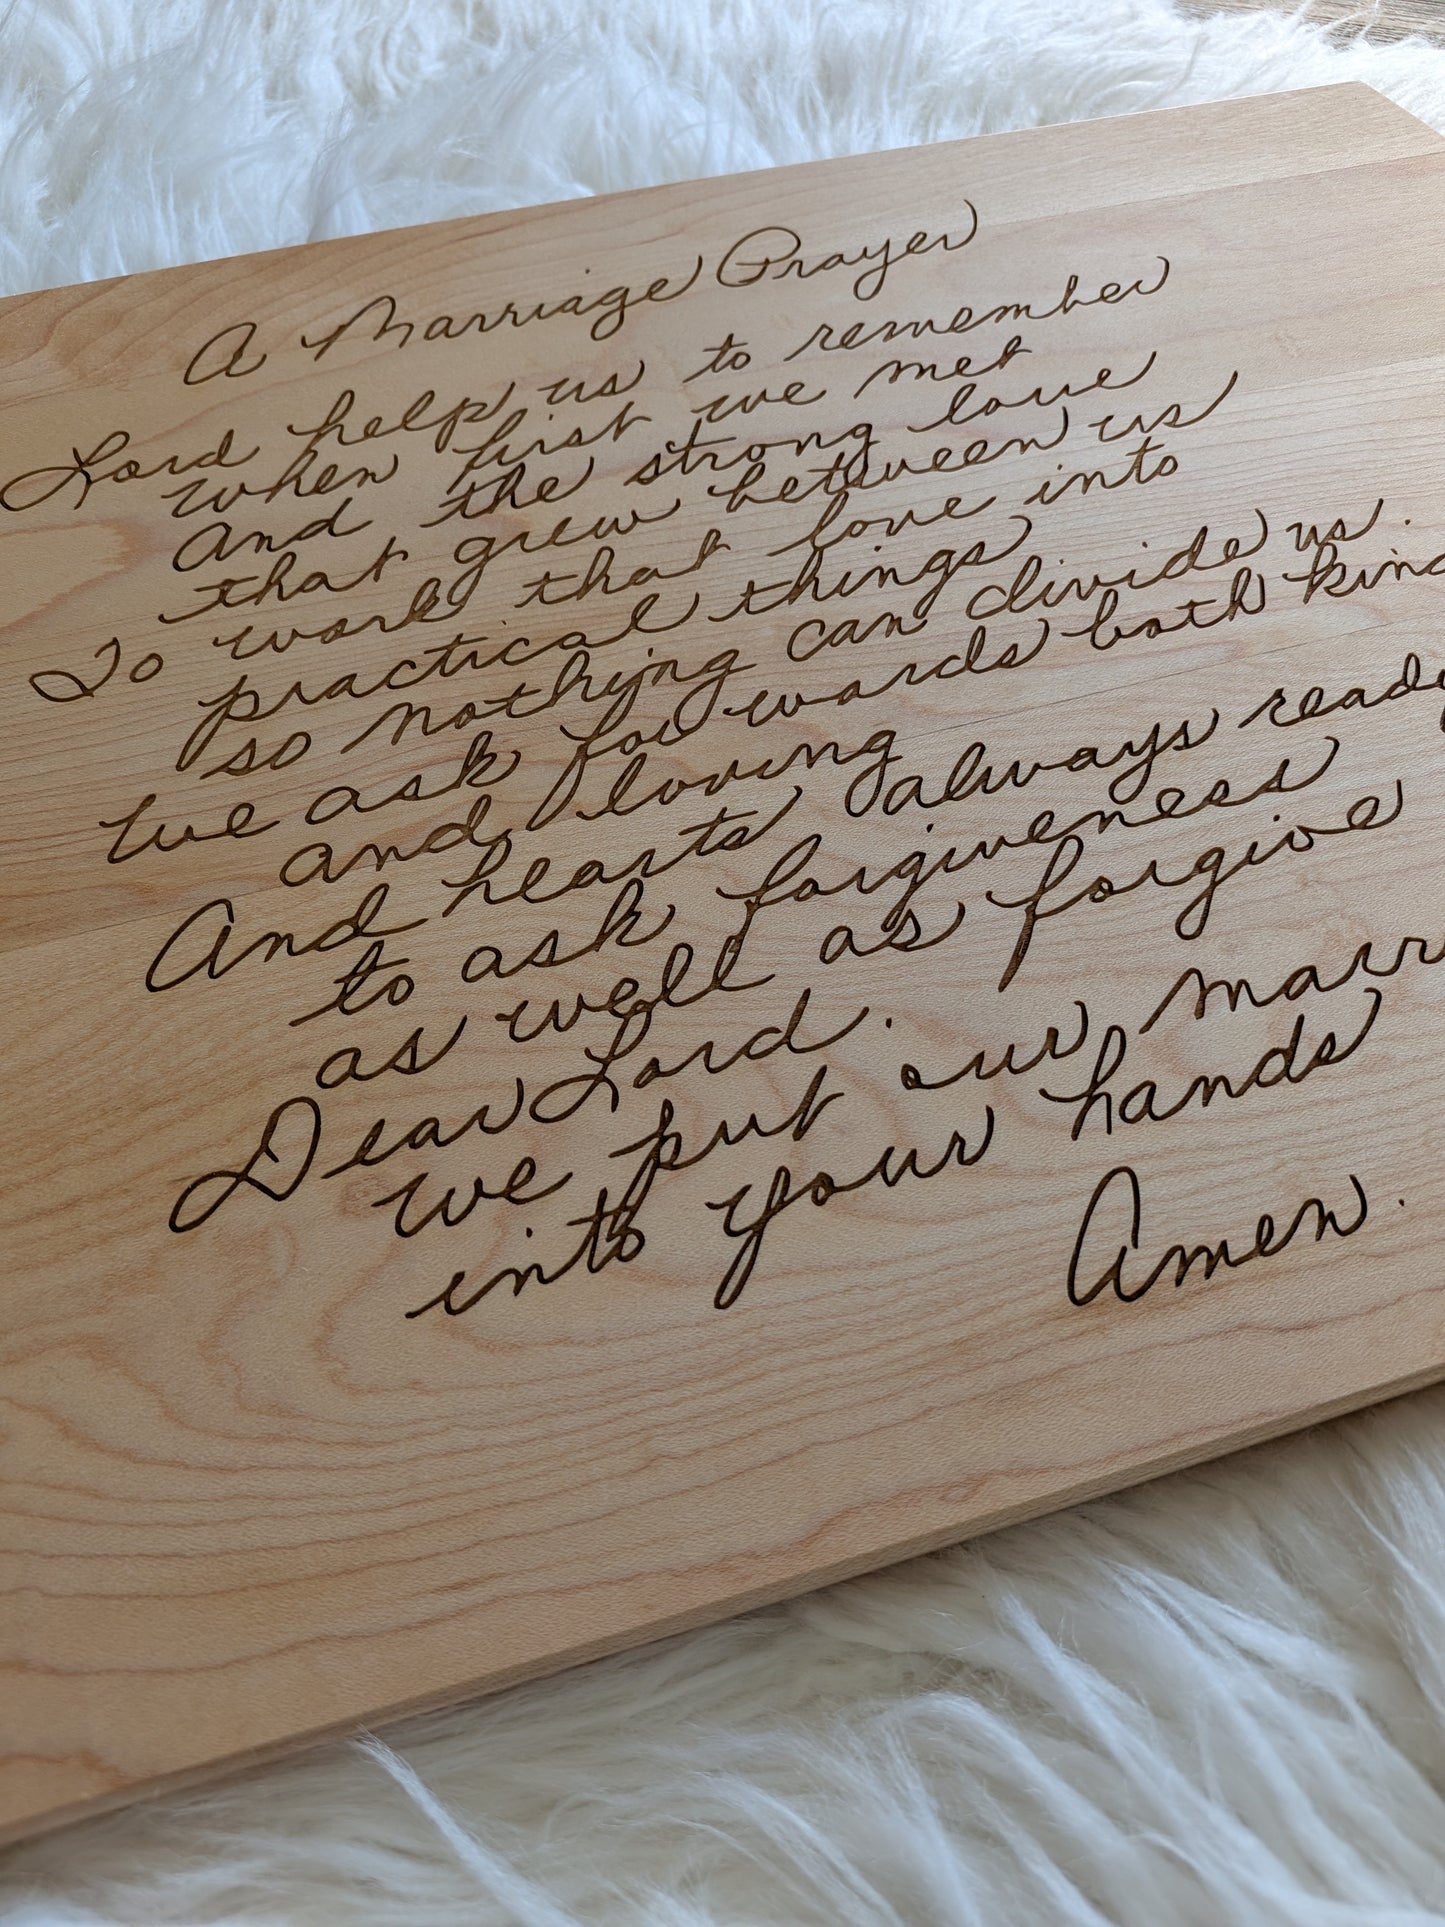 A Marriage Prayer
Lord help us to remember
when first we met
and the strong love
that grew between us
To work that love into
practical things
so nothing can divide us.
We ask for words both kind
and loving
And hearts always ready
to ask forgiveness
as well as forgive
Dear Lord.
we put our marr
into your hands
Amen.